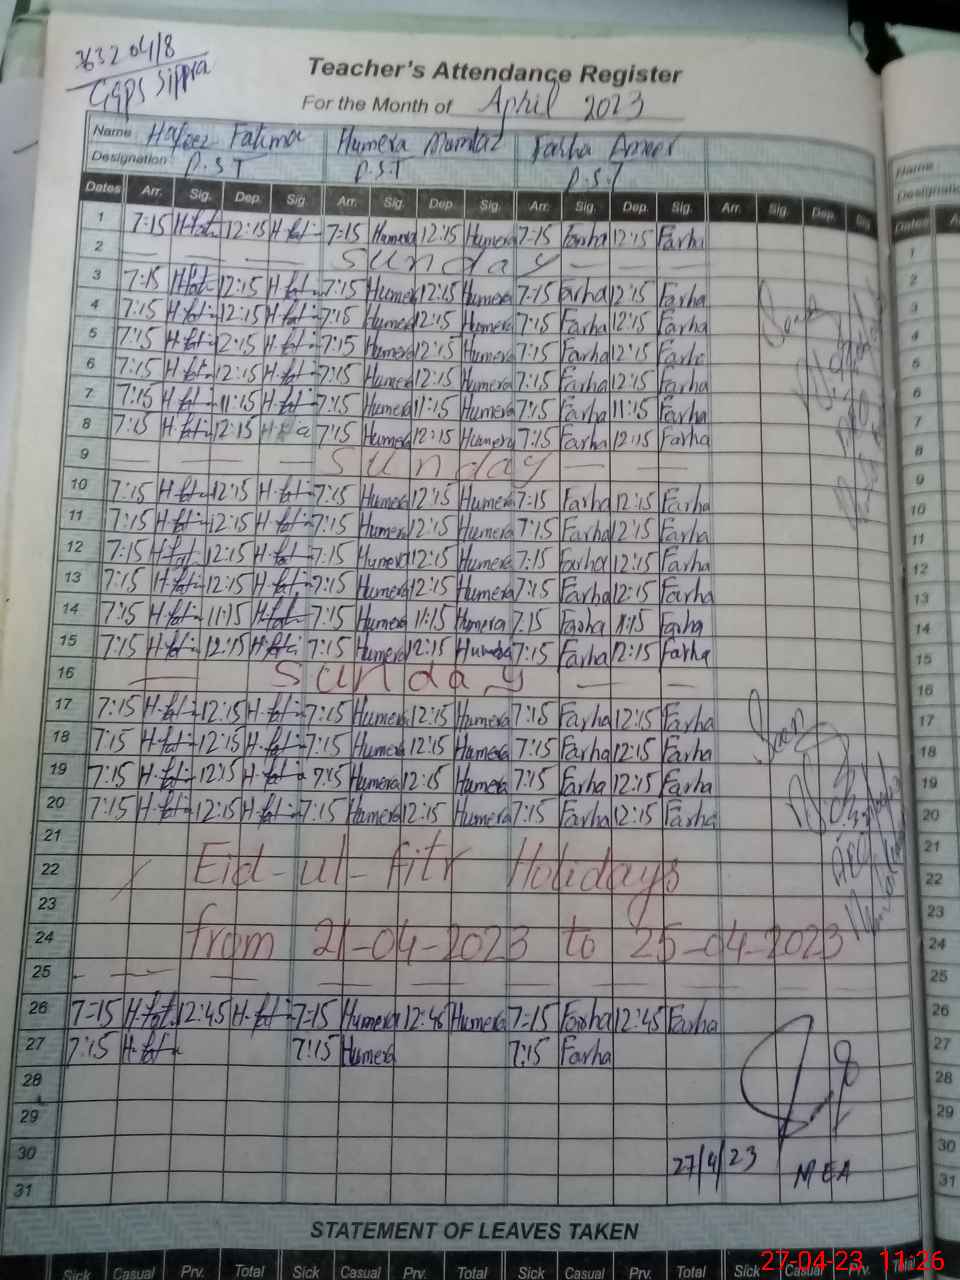 36320418
GGPS Sippra
Teacher's Attendance Register
For the Month of April 2023
Name : Hafeez Fatima Humera Mumtaz Farha Ameer
Designation : P.S.T P.S.T P.S.T
Dates Arr. Sig. Dep. Sig. Arr. Sig. Dep. Sig. Arr. Sig. Dep. Sig. Arr. Sig. Dep. Sig
1 7:15 H-fat 12:15 H-fat 7:15 Humera 12:15 Humera 7:15 Farha 12:15 Farha
2 Sunday
3 7:15 H-fat 12:15 H-fat 7:15 Humera 12:15 Humera 7:15 Farha 12:15 Farha
4 7:15 H-fat 12:15 H-fat 7:15 Humera 12:15 Humera 7:15 Farha 12:15 Farha
5 7:15 H-fat 12:15 H-fat 7:15 Humera 12:15 Humera 7:15 Farha 12:15 Farha
6 7:15 H-fat 12:15 H-fat 7:15 Humera 12:15 Humera 7:15 Farha 12:15 Farha
7 7:15 H-fat 11:15 H-fat 7:15 Humera 11:15 Humera 7:15 Farha 11:15 Farha
8 7:15 H-fat 12:15 7:15 Humera 12:15 Humera 7:15 Farha 12:15 Farha
9 Sunday
10 7:15 H-fat 12:15 H-fat 7:15 Humera 12:15 Humera 7:15 Farha 12:15 Farha
11 7:15 H-fat 12:15 H-fat 7:15 Humera 12:15 Humera 7:15 Farha 12:15 Farha
12 7:15 H-fat 12:15 H-fat 7:15 Humera 12:15 Humera 7:15 Farha 12:15 Farha
13 7:15 H-fat 12:15 H-fat 7:15 Humera 12:15 Humera 7:15 Farha 12:15 Farha
14 7:15 H-fat 11:15 H-fat 7:15 Humera 11:15 Humera 7:15 Farha 11:15 Farha
15 7:15 H-fat 12:15 H-fat 7:15 Humera 12:15 Humera 7:15 Farha 12:15 Farha
16 Sunday
17 7:15 H-fat 12:15 H-fat 7:15 Humera 12:15 Humera 7:15 Farha 12:15 Farha
18 7:15 H-fat 12:15 H-fat 7:15 Humera 12:15 Humera 7:15 Farha 12:15 Farha
19 7:15 H-fat 12:15 H-fat 7:15 Humera 12:15 Humera 7:15 Farha 12:15 Farha
20 7:15 H-fat 12:15 H-fat 7:15 Humera 12:15 Humera 7:15 Farha 12:15 Farha
21
22 Eid-ul-fitr Holidays
23
24 from 21-04-2023 to 25-04-2023
25
26 7=15 H-fat 12:45 H-fat 7=15 Humera 12:45 Humera 7=15 Farha 12:45 Farha
27 7:15 H-fat 7:15 Humera 7:15 Farha
28
29
30 27/4/23 MEA
31
STATEMENT OF LEAVES TAKEN
Sick Casual Prv. Total Sick Casual Prv. Total Sick Casual Prv. Total Sick Casual Prv. Total
Name
Designatio
Dates A
1
2
3
4
5
6
7
8
9
10
11
12
13
14
15
16
17
18
19
20
21
22
23
24
25
26
27
28
29
30
31
27-04-23, 11:26